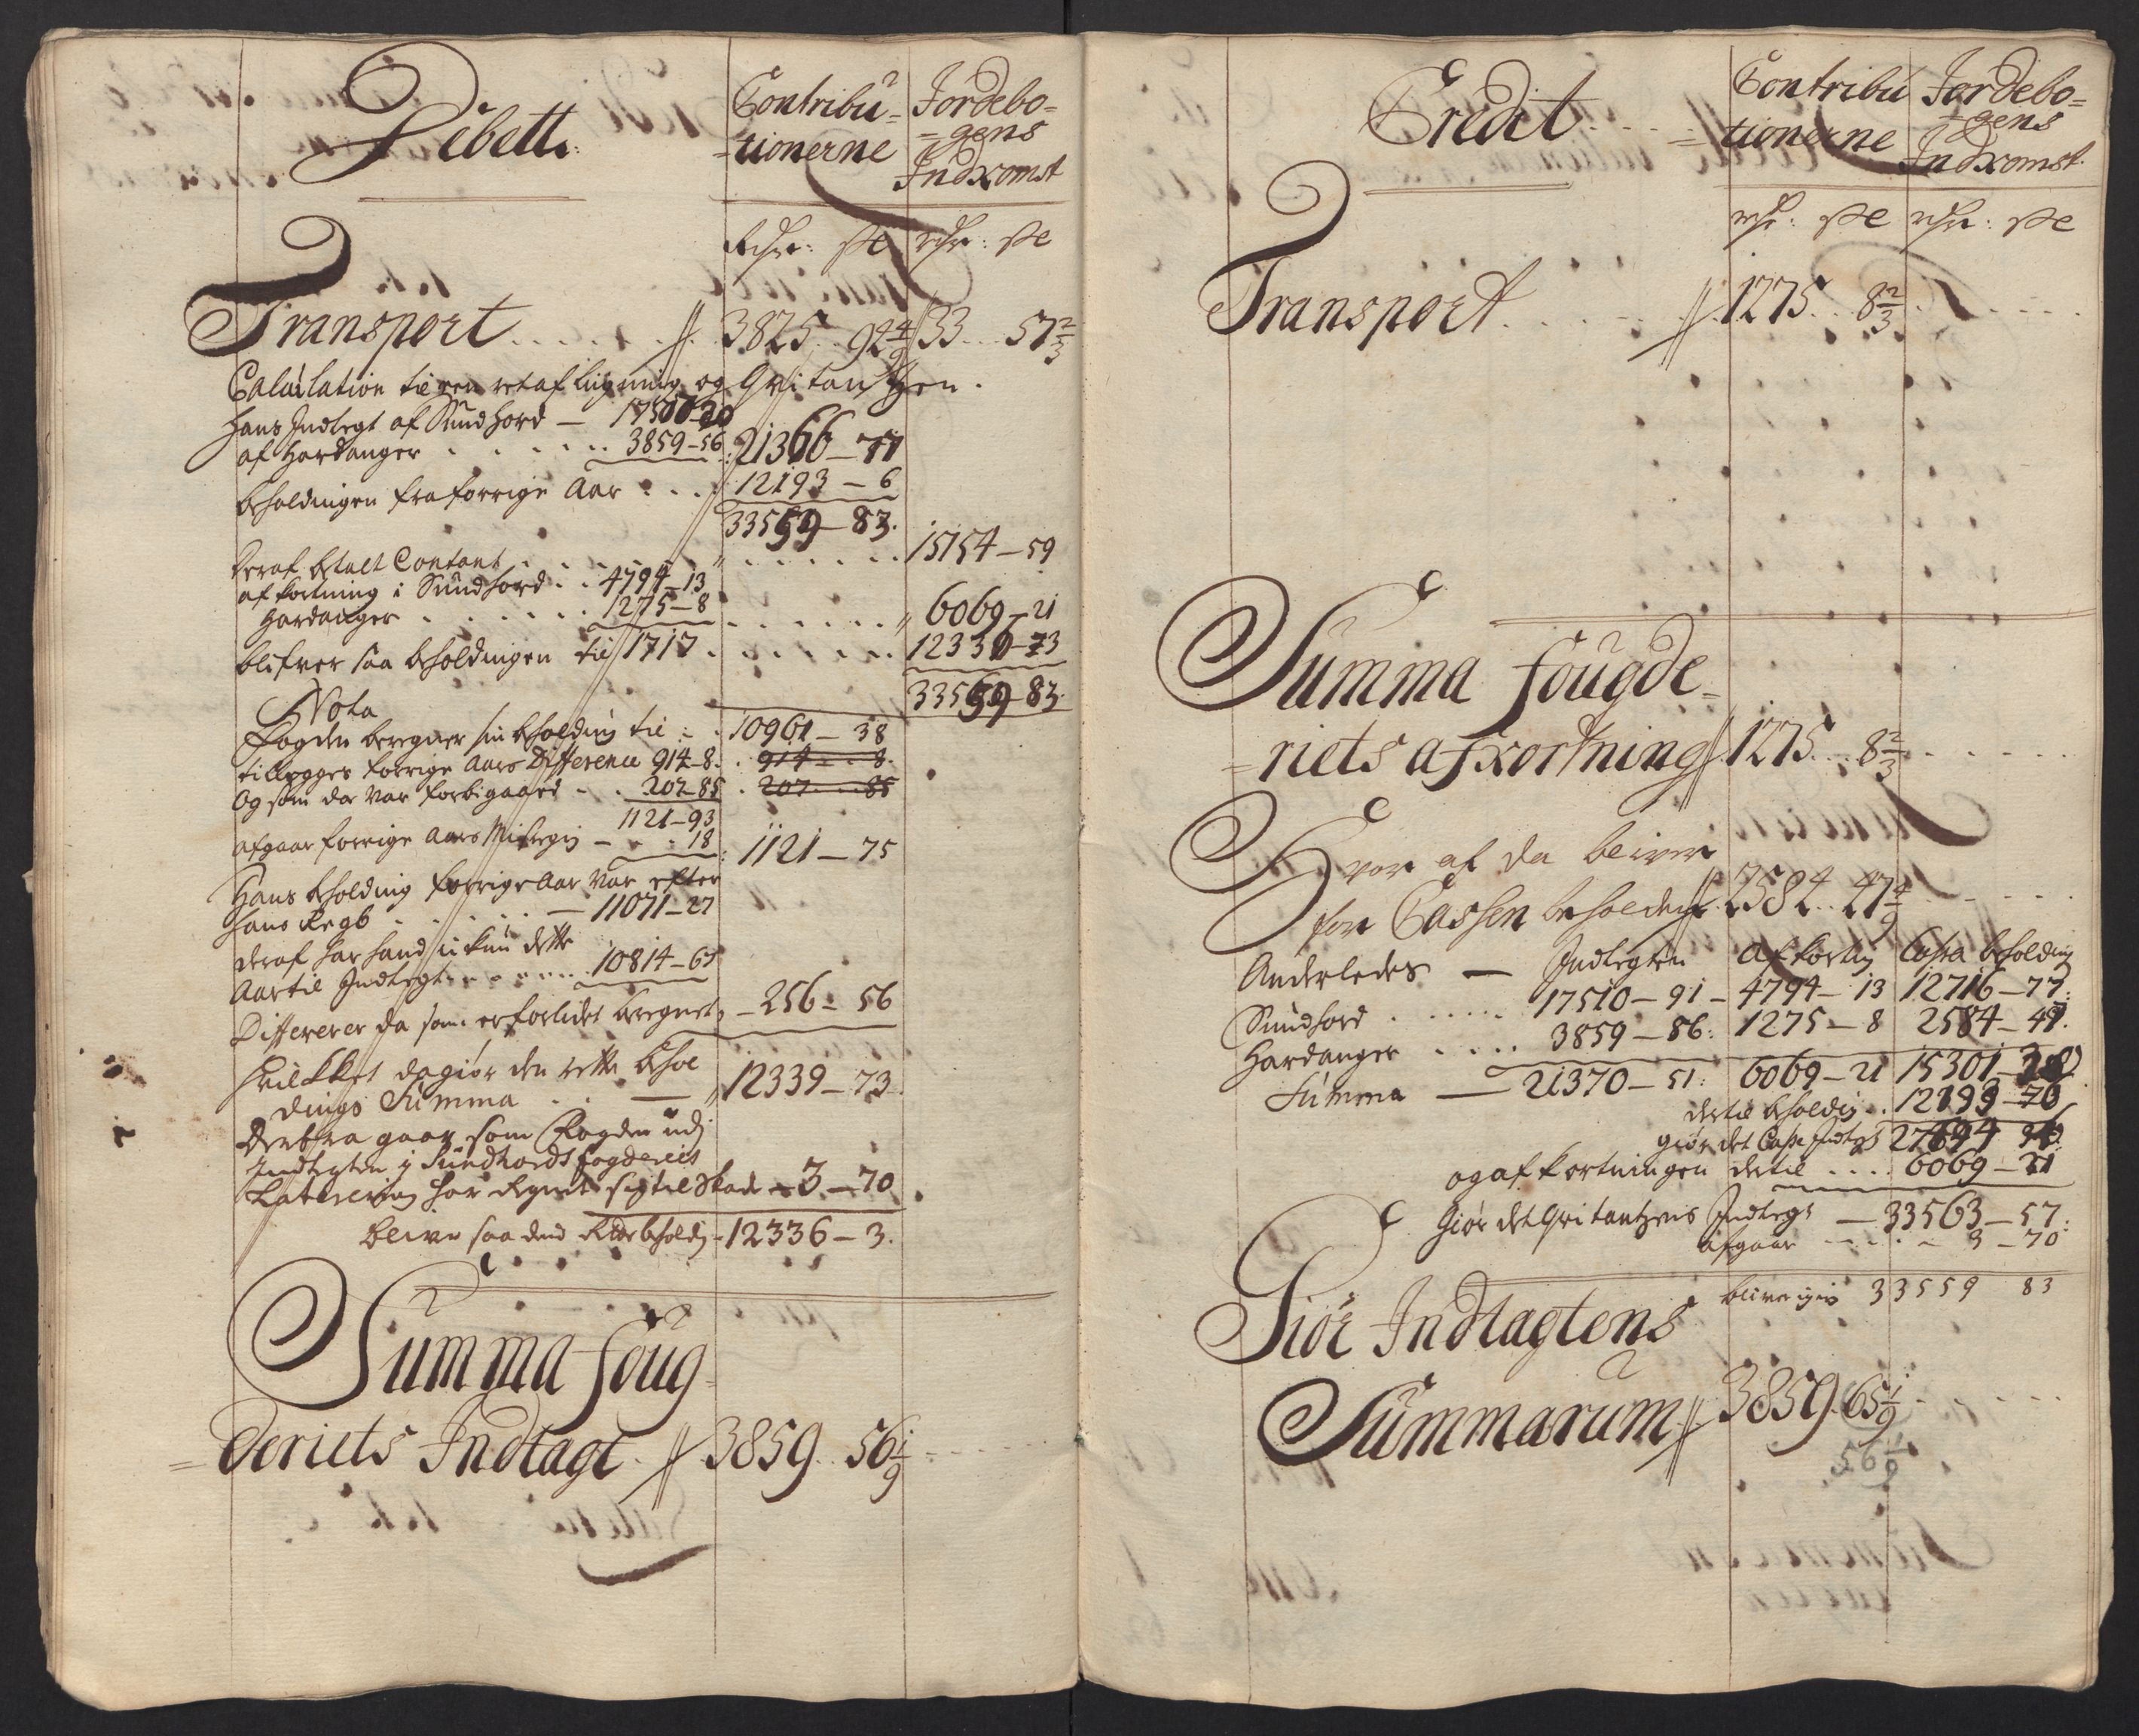 Debett.
Contribu-
-tionerne
Jordebo-
-gens
Indkomst
Rdlr: s rdlr: s
Transport 3825 92 4/9 33 57 2/3
Calculation til ret afligning og Qvitantzen.
Hans Indtegt af Sundhord — 17507-20
af Hardanger 3859-56 21366-77
beholdingen fra forrige Aar 12193-6
33559-83.
deraf betalt Contant 15154-59
afkortning i Sundhord 4794-13
Hardanger 1275-8 6069-21
blifver saa beholdingen til 1717 12339-73
33559-83.
Nota
Fogden beregner sin beholding til 10961-38
tillegges forrige Aars Difference 914-8. 914-8.
Og som da var forbigaaed 207-85 207-85
1121-93
afgaar forrige Aars 18 1121-75
Hans beholding forrige Aar var efter
hans Regb — 11071-27
deraf har hand kun dette
Aar til Indtegt 10814-67
Differerer da som er forlidet beregnet -256-56
hvilkket da giør den rette behol
dings Summa — 12339-73
Derfra gaar som Fogden udj
Indtegten i Sundhords fogderies
Laterering har regnet sig til Skade -3-70
blive saa dend Rette beholdg -12336-3.
Summa Foug
=deriets Indtagt 3859 56 1/9
Credit
Contribu
=tionerne
Jordebo=
=gens
Indkomst.
rdlr: s rdlr: s
Transport 1275 8 2/3
Summa Fougde-
=riets afkortning 1275 8 2/3
Hvor af da bliver
for Cassen beholden 2584 47 4/9
Anderledes — Indtegten Afkortng Cassa beholding
Sundhord 17510-91- 4794-13 12716-77:
Hardanger 3859-56: 1275-8 2584-47.
Summa — 21370-51: 6069-21 15301-30
dertil beholdng 12193-6
giør det Casse Indtegt 27494-36
og afkortningen dertil 6069-21
Giør det Qvitantzens Indtegt — 33563-57:
afgaar 3-70
blive igien 33559 83
Giør Indtagtens
Summarum 3859 65 1/9
56 1/9